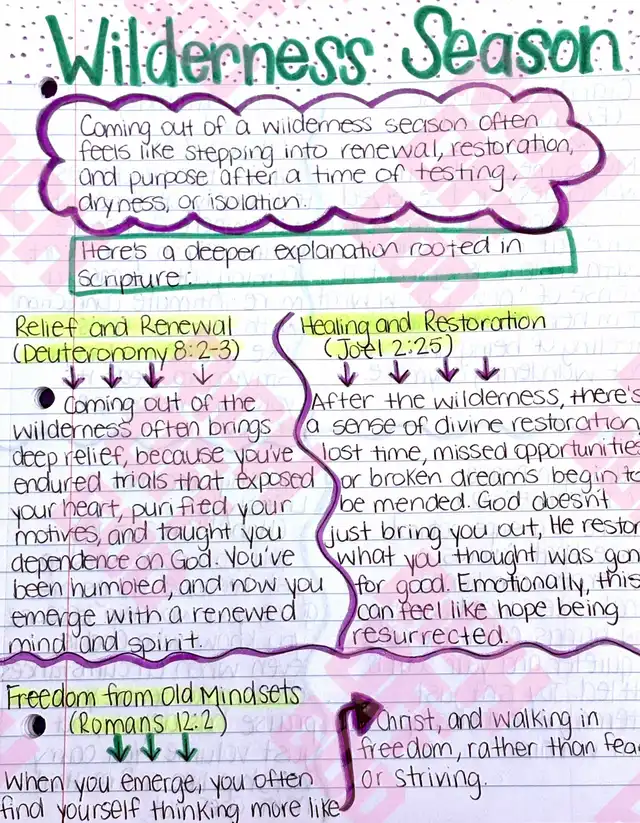 Wilderness Season
Coming out of a wilderness season often
feels like stepping into renewal, restoration,
and purpose after a time of testing,
dryness, or isolation.
Here's a deeper explanation rooted in
scripture:
Relief and Renewal
(Deuteronomy 8:2-3)
Coming out of the
wilderness often brings
deep relief, because you've
endured trials that exposed
your heart, purified your
motives, and taught you
dependence on God. You've
been humbled, and now you
emerge with a renewed
mind and spirit.
Healing and Restoration
(Joel 2:25)
After the wilderness, there's
a sense of divine restoration
lost time, missed opportunitie
or broken dreams begin to
be mended. God doesn't
just bring you out, He restor
what you thought was gon
for good. Emotionally, this
can feel like hope being
resurrected.
Freedom from Old Mindsets
(Romans 12:2)
When you emerge, you often
find yourself thinking more like
Christ, and walking in
freedom, rather than fea
or striving.